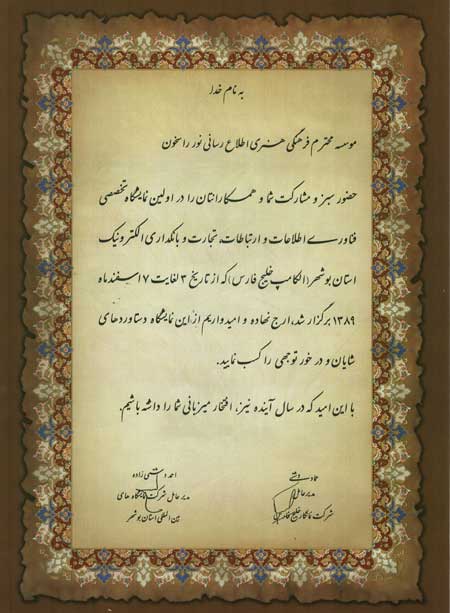 به نام خدا
موسسه محترم فرهنگی هنری اطلاع رسانی نور راسخون
حضور سبز و مشارکت شما و همکارانتان را در اولین نمایشگاه تخصصی
فناوری اطلاعات و ارتباطات، تجارت و بانکداری الکترونیک
استان بوشهر (الکامپ خلیج فارس) که از تاریخ ۳ لغایت ۷ اسفند ماه
۱۳۸۹ برگزار شد، ارج نهاده و امیدواریم از این نمایشگاه دستاوردهای
شایان و در خور توجهی را کسب نمایید.
با این امید که در سال آینده نیز، افتخار میزبانی شما را داشته باشیم.
مدیر عامل
شرکت نمانگار خلیج فارس
احمد دشتی زاده
مدیر عامل شرکت نمایشگاه های
بین المللی استان بوشهر